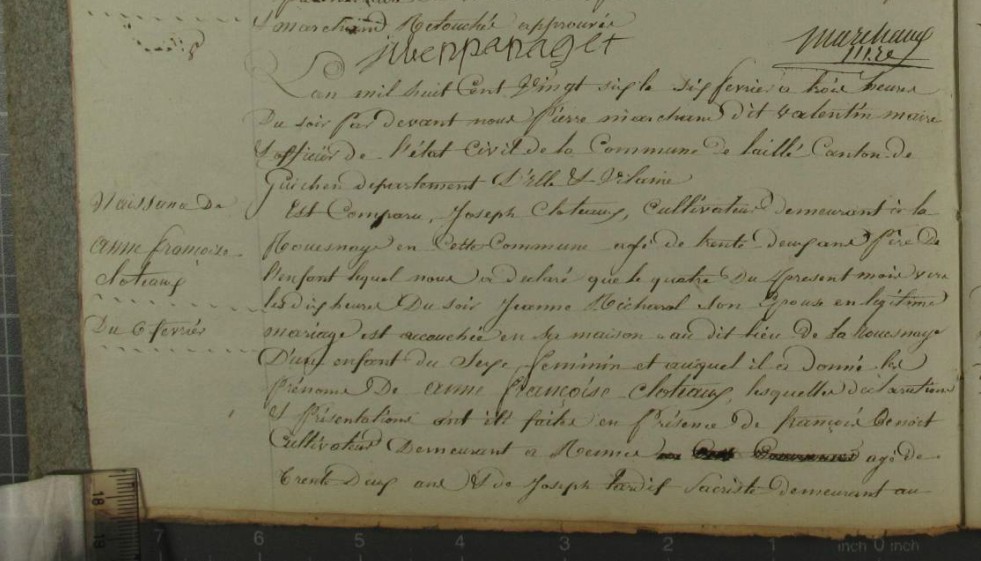 & marchand Retouché approuvés
marchand
maire
Lan mil huit Cent Vingt six le six fevrier à trois heures
Du soir par devant nous Pierre marchand dit Valentin maire
& officier de l'état Civil de la Commune de laillé Canton de
Guichen departement D'ille & Vilaine
Naissance De
anne françoise
clotiaux
Du 6 fevrier
Est Comparu, Joseph Cloteaux, Cultivateur demeurant à la
Rouesnaye en Cette Commune agé de trente deux ans père De
l'enfant lequel nous a déclaré que le quatre Du present mois vers
les dix heures Du soir Jeanne son Epouse en legitime
mariage est accouchée en sa maison au dit lieu de La rouesnaye
D'un enfant du Sexe feminin et auquel il a donné les
Prénoms De anne françoise Clotiaux, lesquelles déclarations
& Présentations ont été faites en Présence de françois Benoist
Cultivateur Demeurant a Rennes agé de
trente Deux ans & de Joseph tardif Sacriste demeurant au